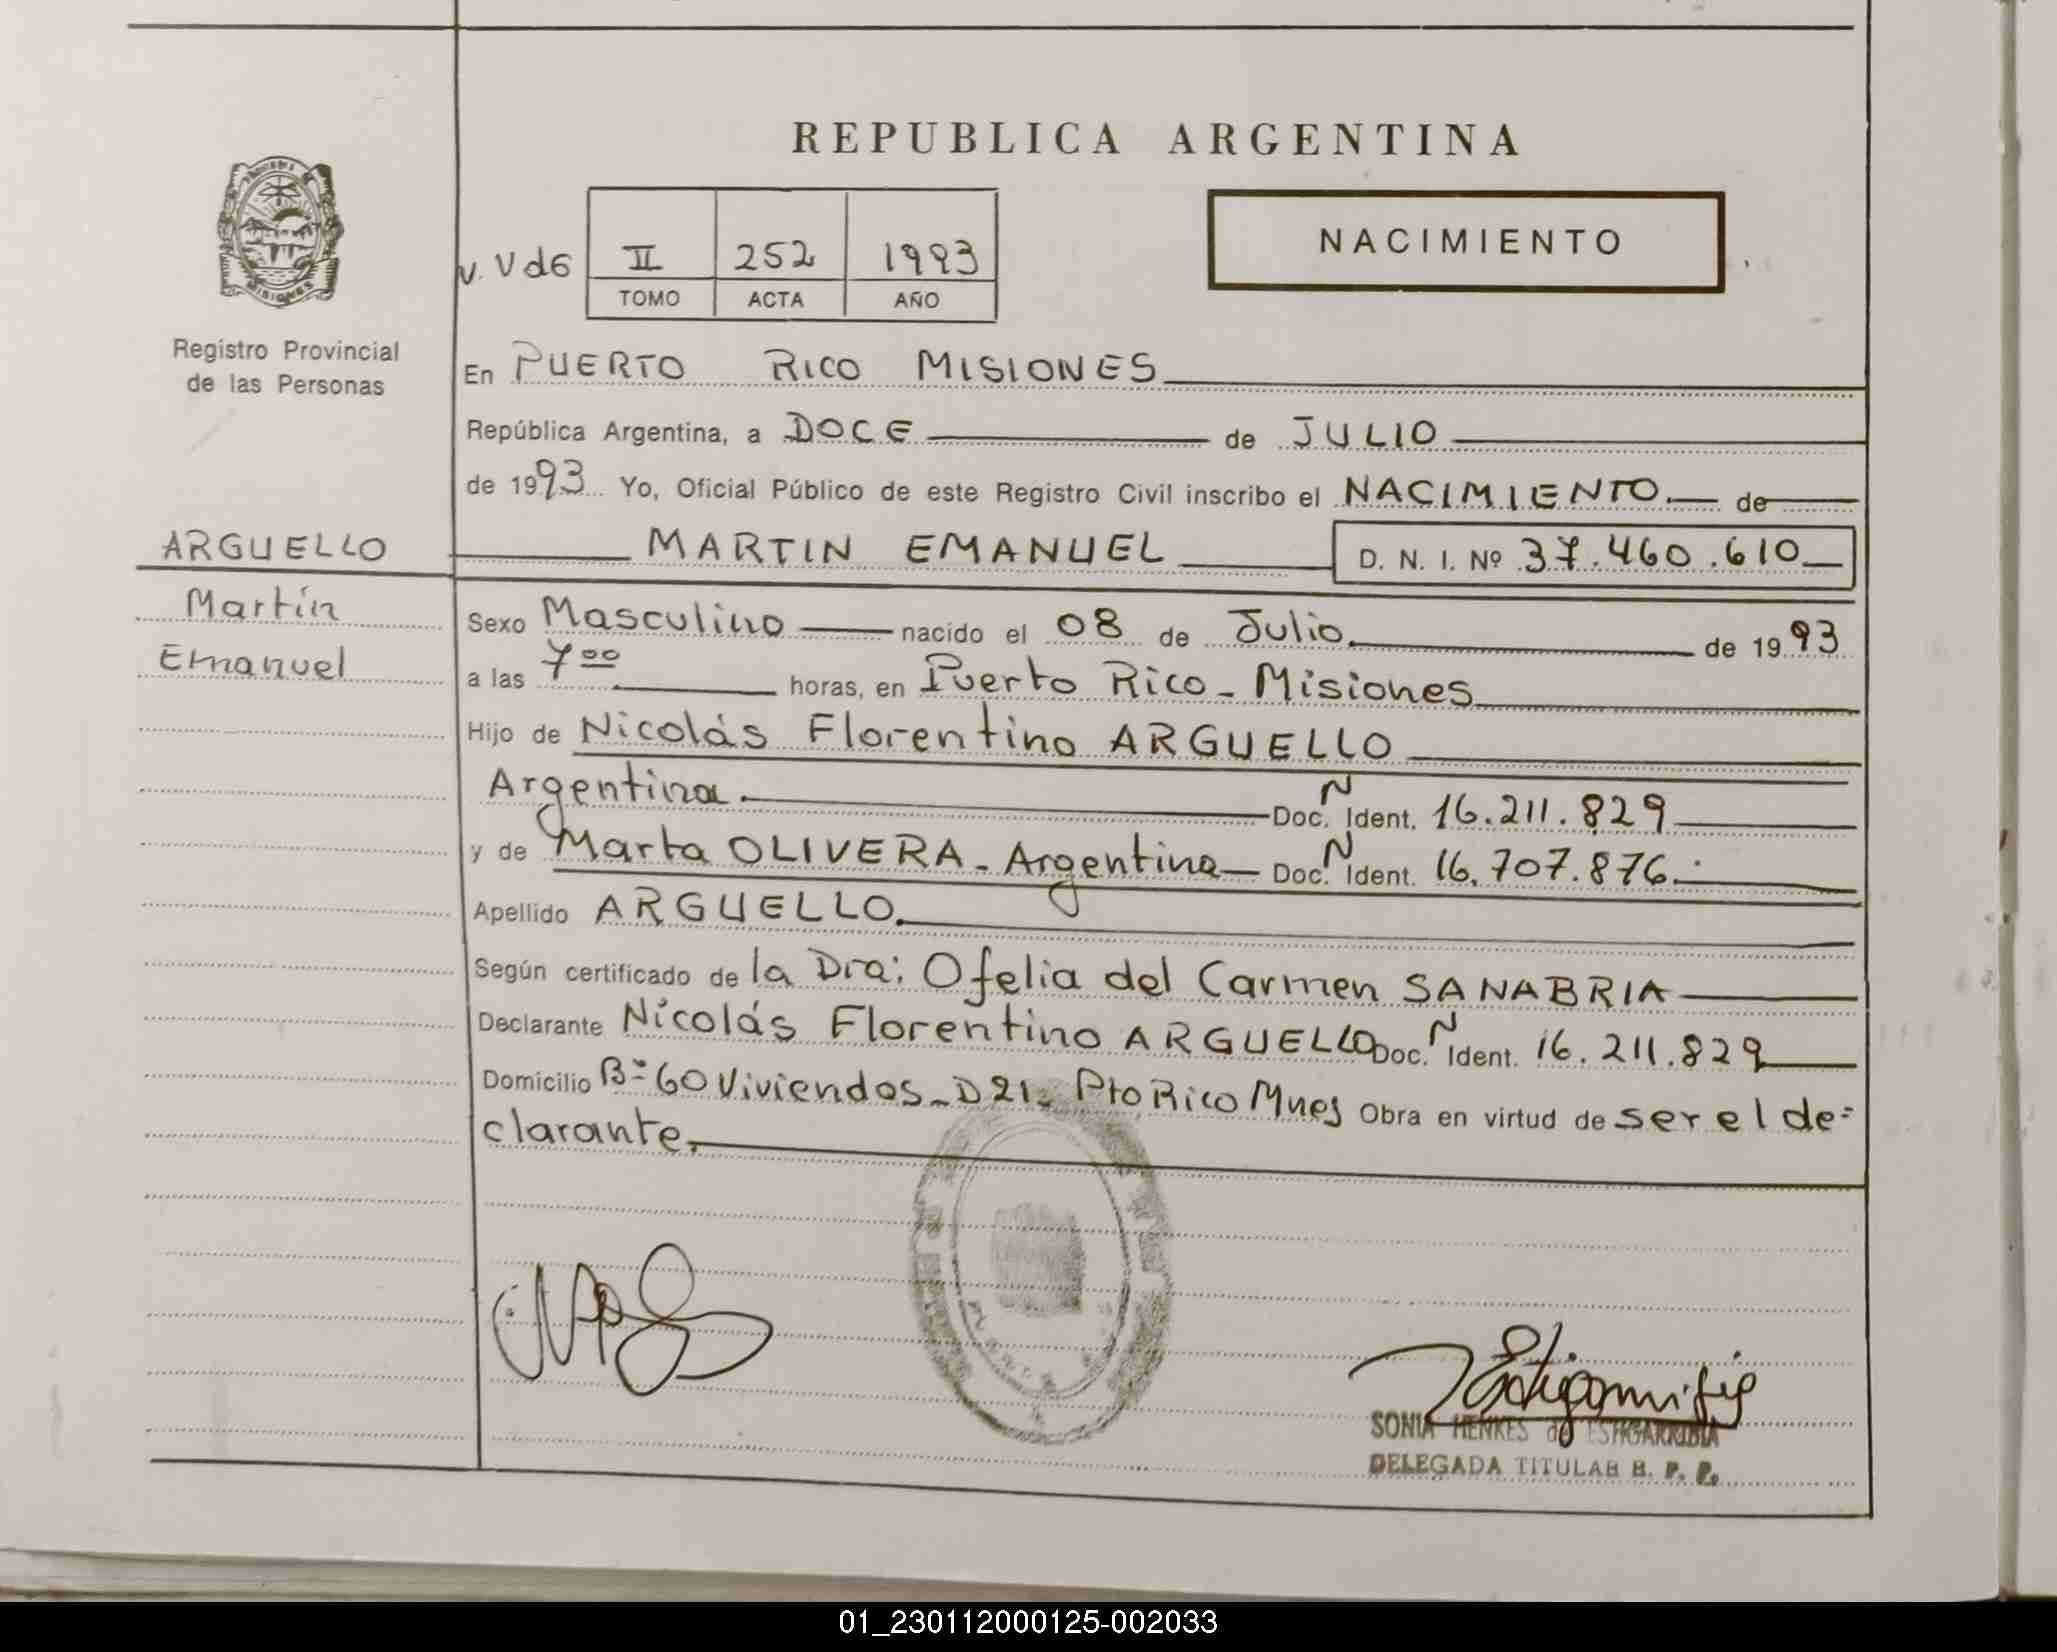 REPUBLICA ARGENTINA
MISIONES
Registro Provincial
de las Personas
v. Vd6 II 252 1993
TOMO ACTA AÑO
NACIMIENTO
En PUERTO RICO MISIONES
República Argentina, a DOCE de JULIO
de 1993 Yo, Oficial Público de este Registro Civil inscribo el NACIMIENTO. de
ARGUELLO
Martín
Emanuel
MARTIN EMANUEL D. N. I. Nº 37.460.610
Sexo Masculino nacido el 08 de Julio. de 1993
a las 7 00 horas, en Puerto Rico - Misiones
Hijo de Nicolás Florentino ARGUELLO
Argentina. Doc. N Ident. 16.211.829
y de Marta OLIVERA - Argentina Doc. N Ident. 16.707.876.
Apellido ARGUELLO.
Según certificado de la Dra: Ofelia del Carmen SANABRIA
Declarante Nicolás Florentino ARGUELLO Doc. N Ident. 16.211.829
Domicilio Bº 60 Viviendas - D 21 - Pto Rico Mnes Obra en virtud de ser el de=
clarante.
SONIA HENKES de ESTIGARRIBIA
DELEGADA TITULAR R. P. P.
01_230112000125-002033